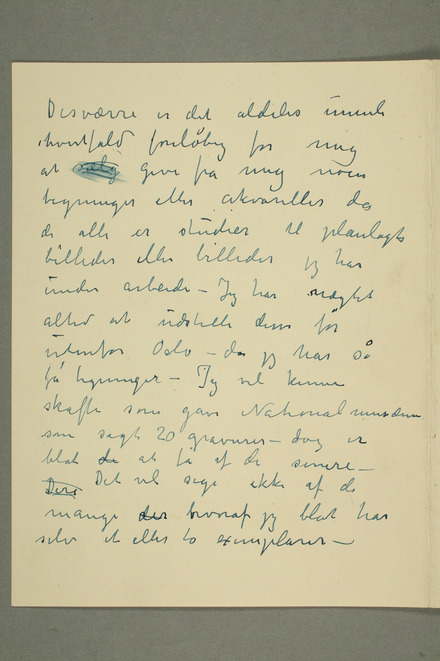 Desværre er det aldeles umuli
ihvertfald foreløbig for mig
at give fra mig noen
tegninger eller akvareller da
de alle er studier til planlagte
billeder eller billeder jeg har
under arbeide – Jeg har nægtet
altid at udstille dem før
utenfor Oslo – da jeg har så
få tegninger – Jeg vil kunne
skaffe som gave Nationalmuseum
som sagt 20 gravurer – dog er
blot de at få af de senere –
Det vil sige ikke af de
mange der hvoraf jeg blot har
selv et eller to exemplarer –